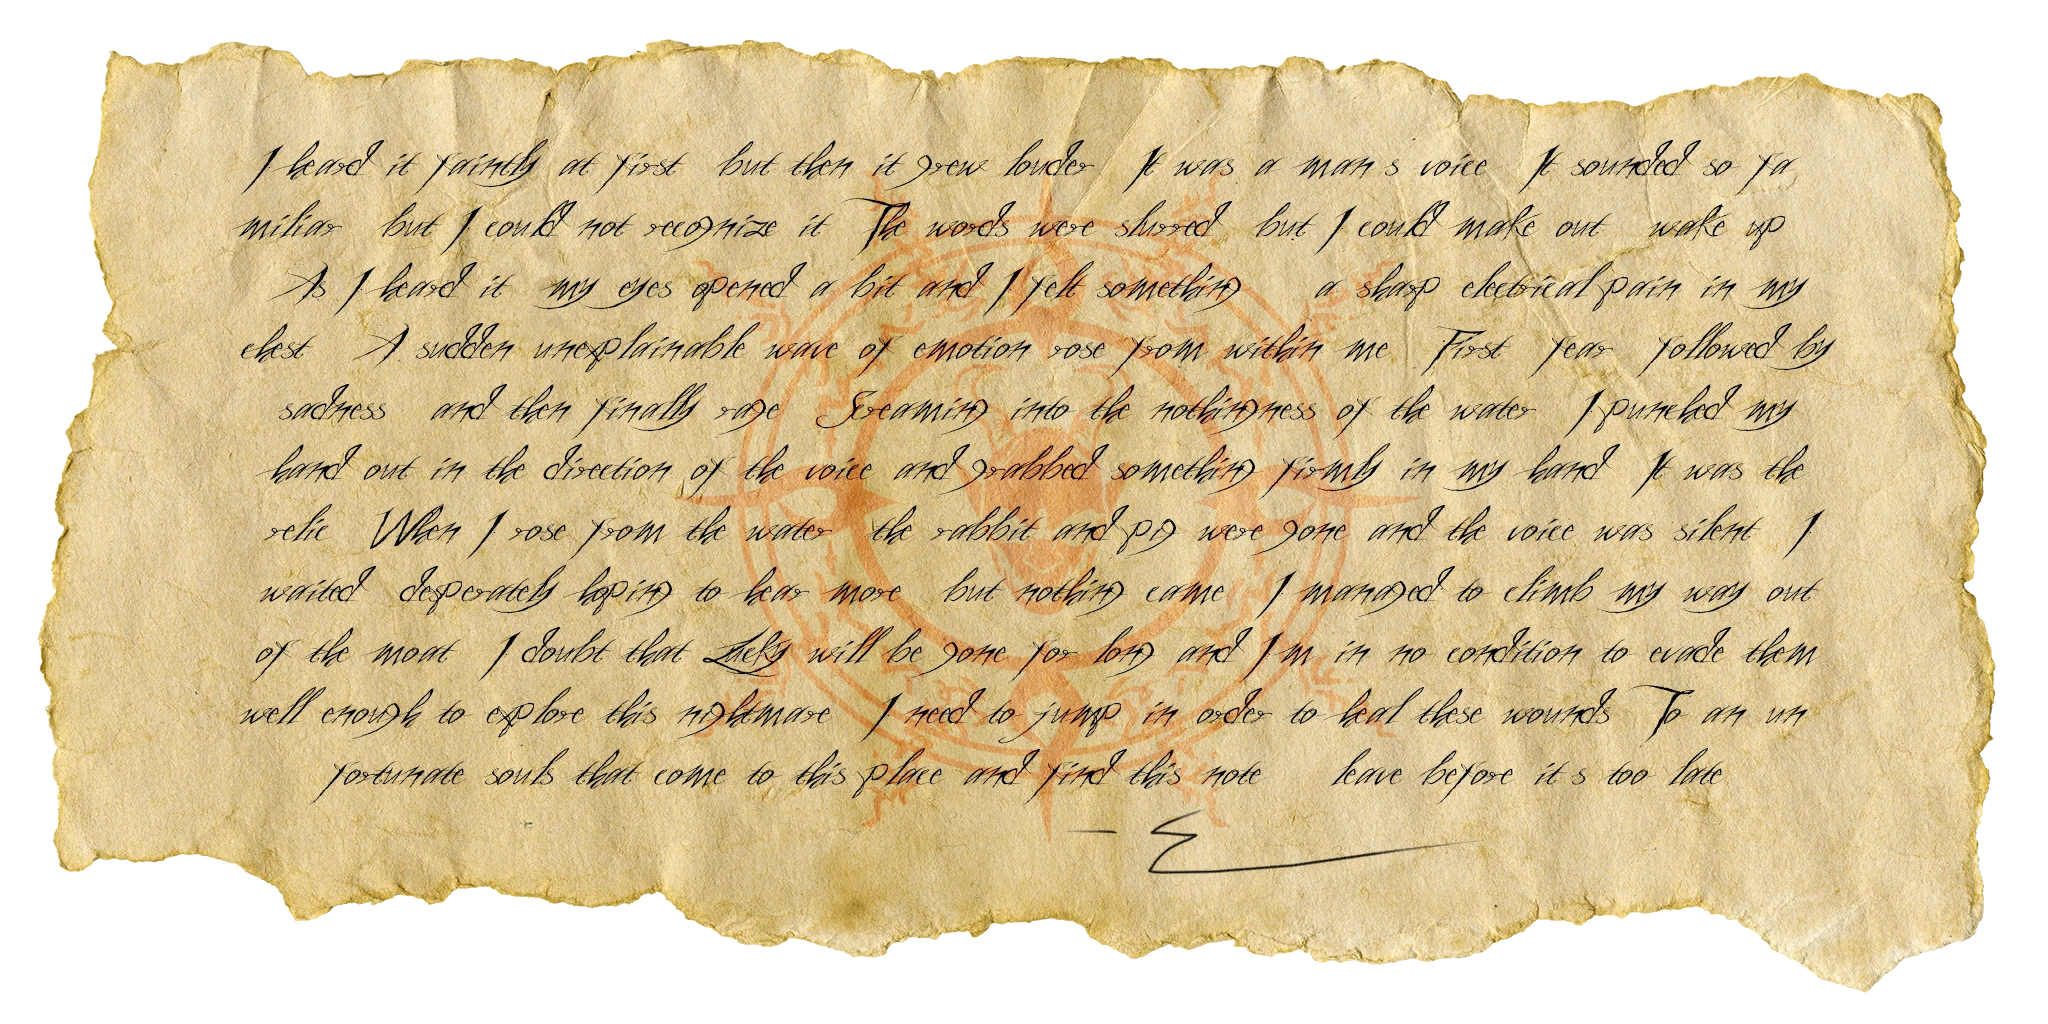 I heard it faintly at first but then it grew louder It was a man s voice It sounded so fa
miliar but I could not recognize it The words were slurred but I could make out wake up
As I heard it my eyes opened a bit and I felt something a sharp electrical pain in my
chest A sudden unexplainable wave of emotion rose from within me First fear followed by
sadness and then finally rage Screaming into the nothingness of the water I punched my
hand out in the direction of the voice and grabbed something firmly in my hand It was the
relic When I rose from the water the rabbit and pig were gone and the voice was silent I
waited desperately hoping to hear more but nothing came I managed to climb my way out
of the moat I doubt that Lucky will be gone for long and I m in no condition to evade them
well enough to explore this nightmare I need to jump in order to heal these wounds To an un
fortunate souls that come to this place and find this note leave before it s too late
- E